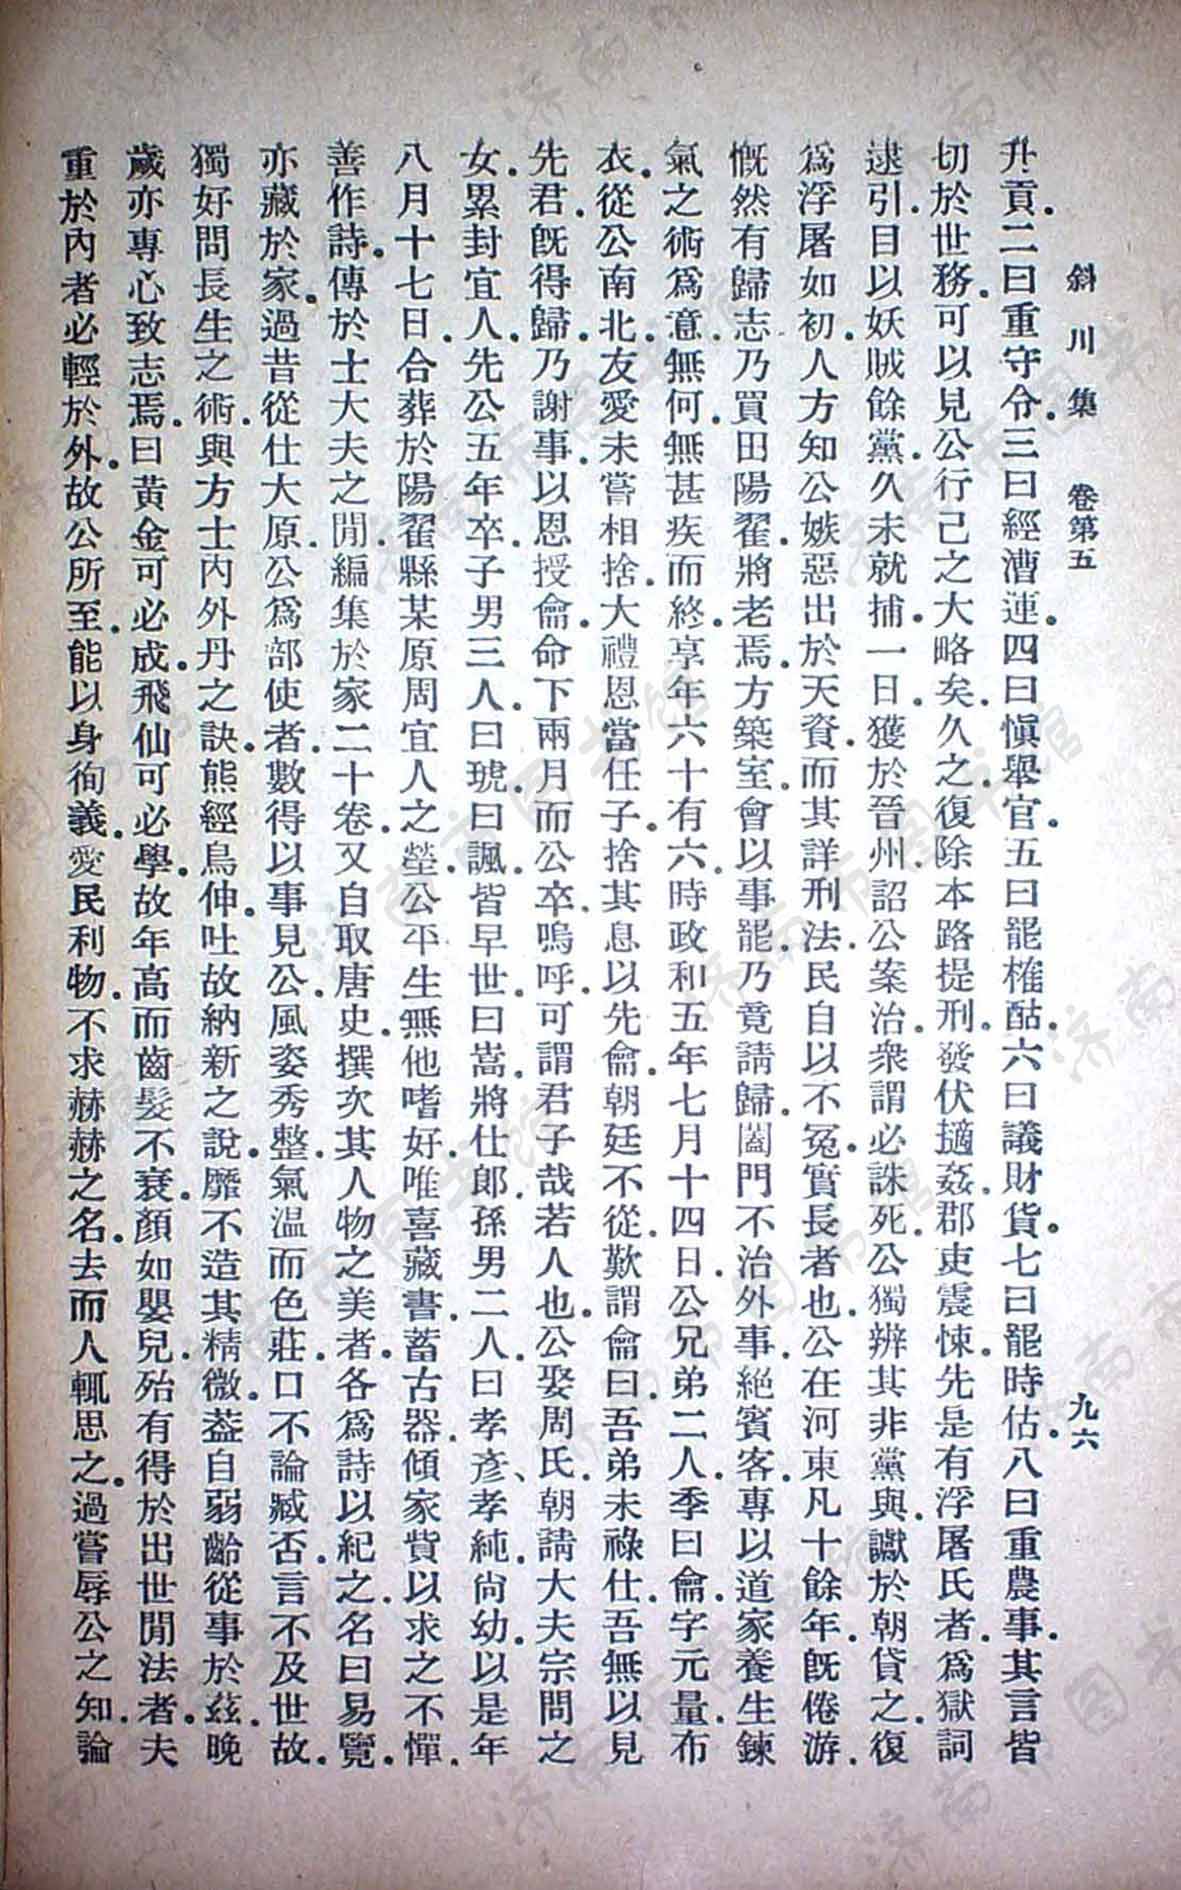 斜川集 卷第五 九六
升貢.二曰重守令.三曰經漕運.四曰愼舉官.五曰罷榷酤.六曰議財貨.七曰罷時估.八曰重農事.其言皆
切於世務.可以見公行己之大略矣.久之.復除本路提刑.發伏擿姦.郡吏震悚.先是有浮屠氏者.爲獄詞
逮引.目以妖賊餘黨.久未就捕.一日.獲於晉州.詔公案治.衆謂必誅死.公獨辨其非黨與.讞於朝貸之.復
爲浮屠如初.人方知公嫉惡出於天資.而其詳刑法.民自以不冤.實長者也.公在河東凡十餘年.旣倦游.
慨然有歸志.乃買田陽翟.將老焉.方築室.會以事罷.乃竟請歸.闔門不治外事.絕賓客.專以道家養生鍊
氣之術爲意.無何.無甚疾而終.享年六十有六.時政和五年七月十四日.公兄弟二人.季曰侖.字元量.布
衣.從公南北.友愛未嘗相捨.大禮恩當任子.捨其息以先侖.朝廷不從.歎謂侖曰.吾弟未祿仕.吾無以見
先君.旣得歸.乃謝事.以恩授侖.命下兩月而公卒.嗚呼.可謂君子哉若人也.公娶周氏.朝請大夫宗問之
女.累封宜人.先公五年卒.子男三人.曰琥.曰諷.皆早世.曰嵩.將仕郎.孫男二人.曰孝彥、孝純.尙幼.以是年
八月十七日.合葬於陽翟縣某原周宜人之塋.公平生無他嗜好.唯喜藏書.蓄古器.傾家貲以求之不憚.
善作詩.傳於士大夫之閒.編集於家二十卷.又自取唐史.撰次其人物之美者.各爲詩以紀之.名曰易覽.
亦藏於家.過昔從仕大原.公爲部使者.數得以事見公.風姿秀整.氣溫而色莊.口不論臧否.言不及世故.
獨好問長生之術.與方士內外丹之訣.熊經鳥伸.吐故納新之說.靡不造其精微.葢自弱齡從事於茲.晚
歲亦專心致志焉.曰黃金可必成.飛仙可必學.故年高而齒髮不衰.顏如嬰兒.殆有得於出世閒法者.夫
重於內者必輕於外.故公所至.能以身徇義.愛民利物.不求赫赫之名.去而人輒思之.過嘗辱公之知.論